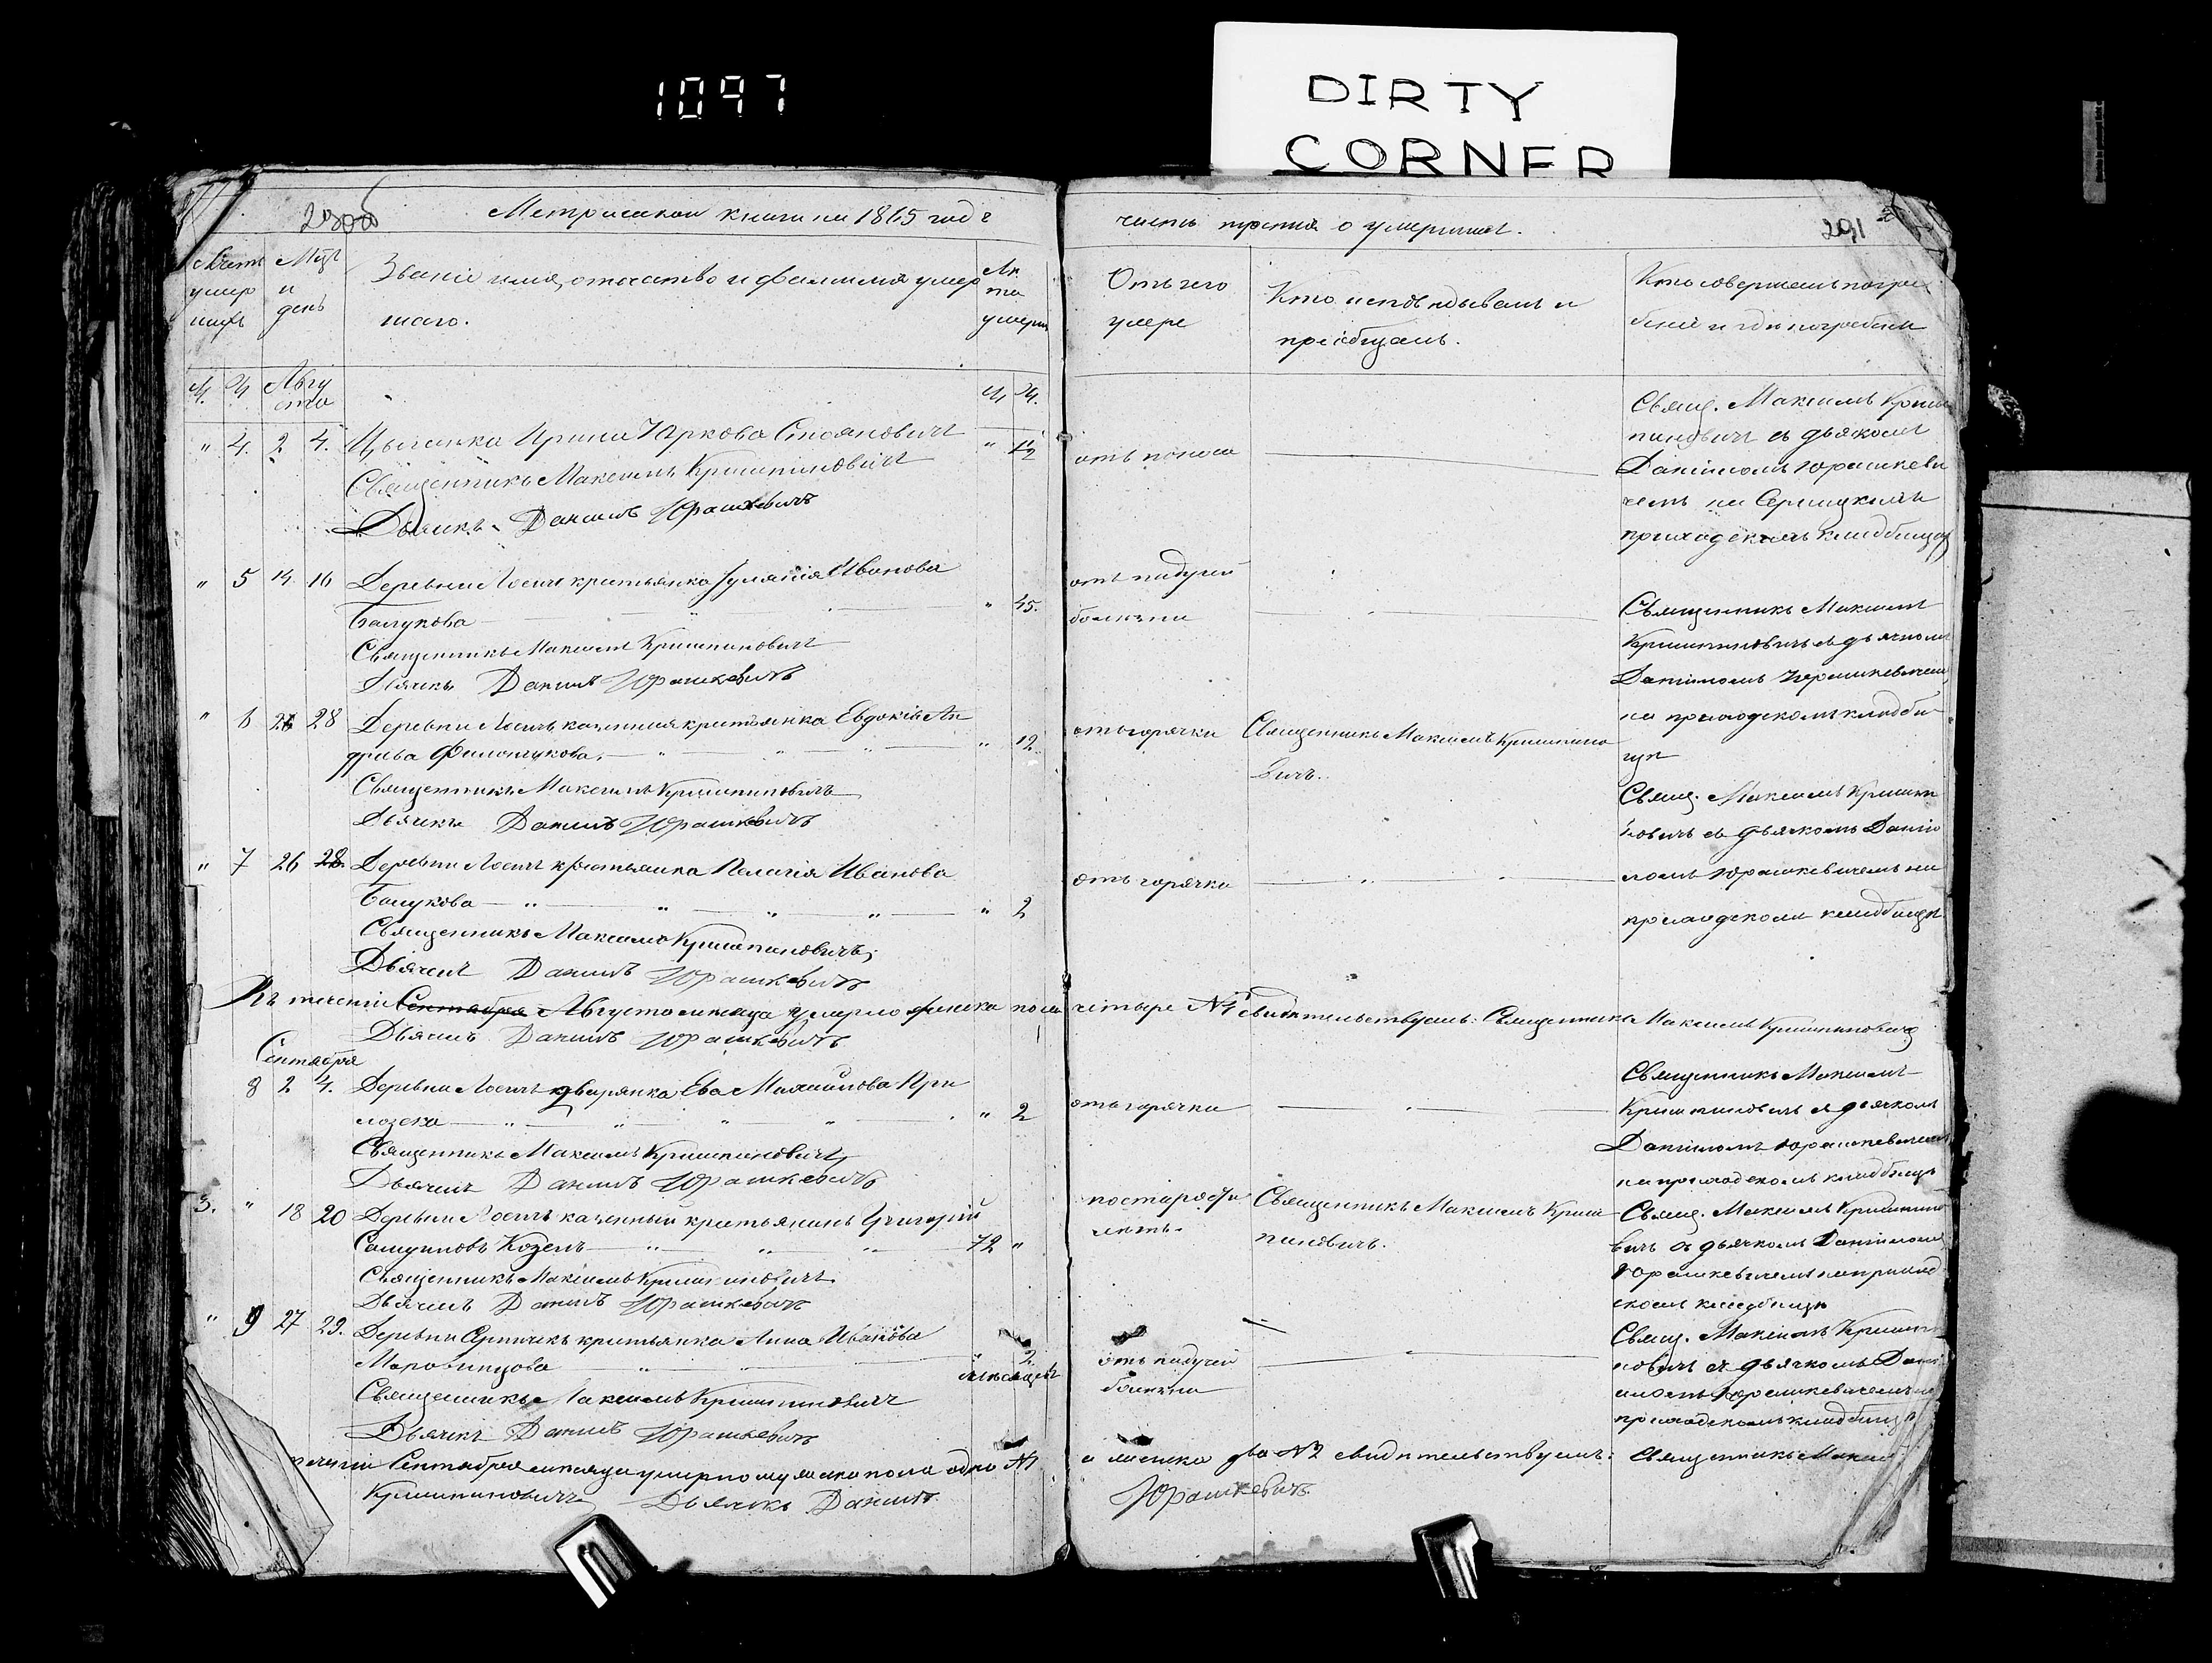 1097
DIRTY
CORNER
Метрической книги на 1865 годъ
часть третія о умершихъ.
291
Счетъ умер шихъ
Мѣс. и день
Званіе имя, отчество и фамилія умер
шаго.
Лѣ та умерш
Отъ чего
умере
Кто исповѣдывалъ и
пріобщалъ.
Кто совершалъ погре
беніе и гдѣ погребены
М. Ж. Авгу ста
М. Ж.
" 4. 2 4. Цыганка Ирина Маркова Стояновичъ " 12
отъ поноса
Священникъ Максимъ Криштиновичъ
Дьячекъ Данилъ Юрашкевичъ
Свящ. Максимъ Кришти
пиновичъ съ дьякомъ
Даніиломъ Юрашкеви
чемъ на
приходскомъ кладбищѣ
" 5 14 16 Деревни Лосичъ крестьянка Іуліанія Иванова
Балукова " 45.
отъ падучей
болѣзни
Священникъ Максимъ Криштиновичъ
Дьячкъ Данилъ Юрашкевичъ
Священникъ Максимъ
Криштиновичъ съ дьячкомъ
Даніиломъ Юрашкевичемъ
на приходскомъ кладби
щѣ
" 6 26 28 Деревни Лосичъ казенная крестьянка Евдокія Ан
дреева Филончукова. " 12.
отъ горячки
Священникъ Максимъ Криштино
вичъ.
Священникъ Максимъ Криштиновичъ
Дьячкъ Данилъ Юрашкевичъ
Свящ. Максимъ Кришти
новичъ съ дьячкомъ Даніи
ломъ Юрашкевичемъ на
приходскомъ кладбищѣ
" 7 26 28. Деревни Лосичъ крестьянка Пелагія Иванова
Балукова " 2
отъ горячки
Священникъ Максимъ Криштиновичъ
Дьячекъ Данилъ Юрашкевичъ
Въ теченіи Сентября Августа мѣсяца умерло женска пола четыре №4 свидѣтельствуемъ: Священникъ Максимъ Криштиновичъ
Дьячекъ Данилъ Юрашкевичъ
Сентября
8 2 4. Деревни Лосичъ дворянка Ева Михайлова При
лозека " 2
отъ горячки
Священникъ Максимъ Криштиновичъ
Дьячекъ Данилъ Юрашкевичъ
Священникъ Максимъ
Криштиновичъ съ дьячкомъ
Даніиломъ Юрашкевичемъ
на приходскомъ кладбищѣ
3. " 18 20 Деревни Лосичъ казенный крестьянинъ Григорій
Самуиловъ Козелъ 72 "
по старости
лѣтъ.
Священникъ Максимъ Криш
тиновичъ.
Священникъ Максимъ Криштиновичъ
Дьячекъ Данилъ Юрашкевичъ
Свящ. Максимъ Криштино
вичъ съ дьячкомъ Даніиломъ
Юрашкевичемъ на приход
скомъ кладбищѣ
" 9 27 29. Деревни крестьянка Анна Иванова
" 2. мѣсяцевъ
отъ падучей
болѣзни
Священникъ Максимъ Криштиновичъ
Дьячкъ Данилъ Юрашкевичъ
Свящ. Максимъ Кришти
новичъ съ дьячкомъ Дані
иломъ Юрашкевичемъ на
приходскомъ кладбищѣ
теченіи Сентября мѣсяца умерло мужска пола одно №1 а женска два №2 свидѣтельствуемъ: Священникъ Максимъ
Криштиновичъ Дьячкъ Данилъ Юрашкевичъ.